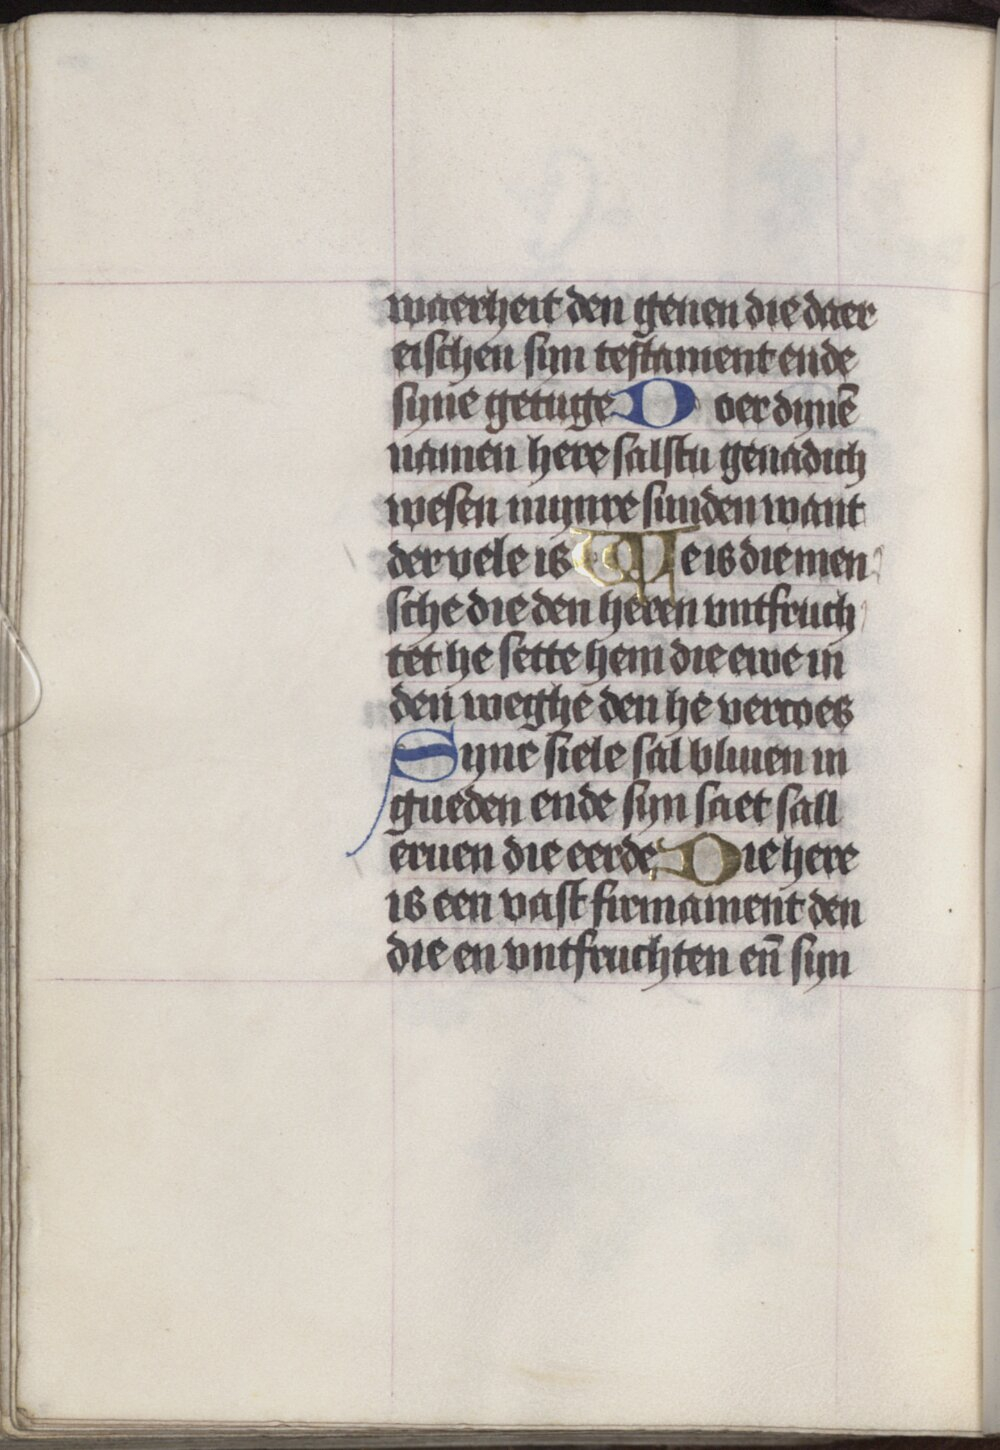 waerheit den genen die daer
eischen sijn testament ende
syne getuge Doer dynē
namen here salstu genadich
wesen mynre sunden want
der vele is We is die men
sche die den heren vntfruch
tet he sette hem die ewe in
den weghe den he vercoes
Syne siele sal bliuen in
gueden ende syn saet sall
eruen die eerde Die here
is een vast firmament den
die en vntfruchten en̄ syn